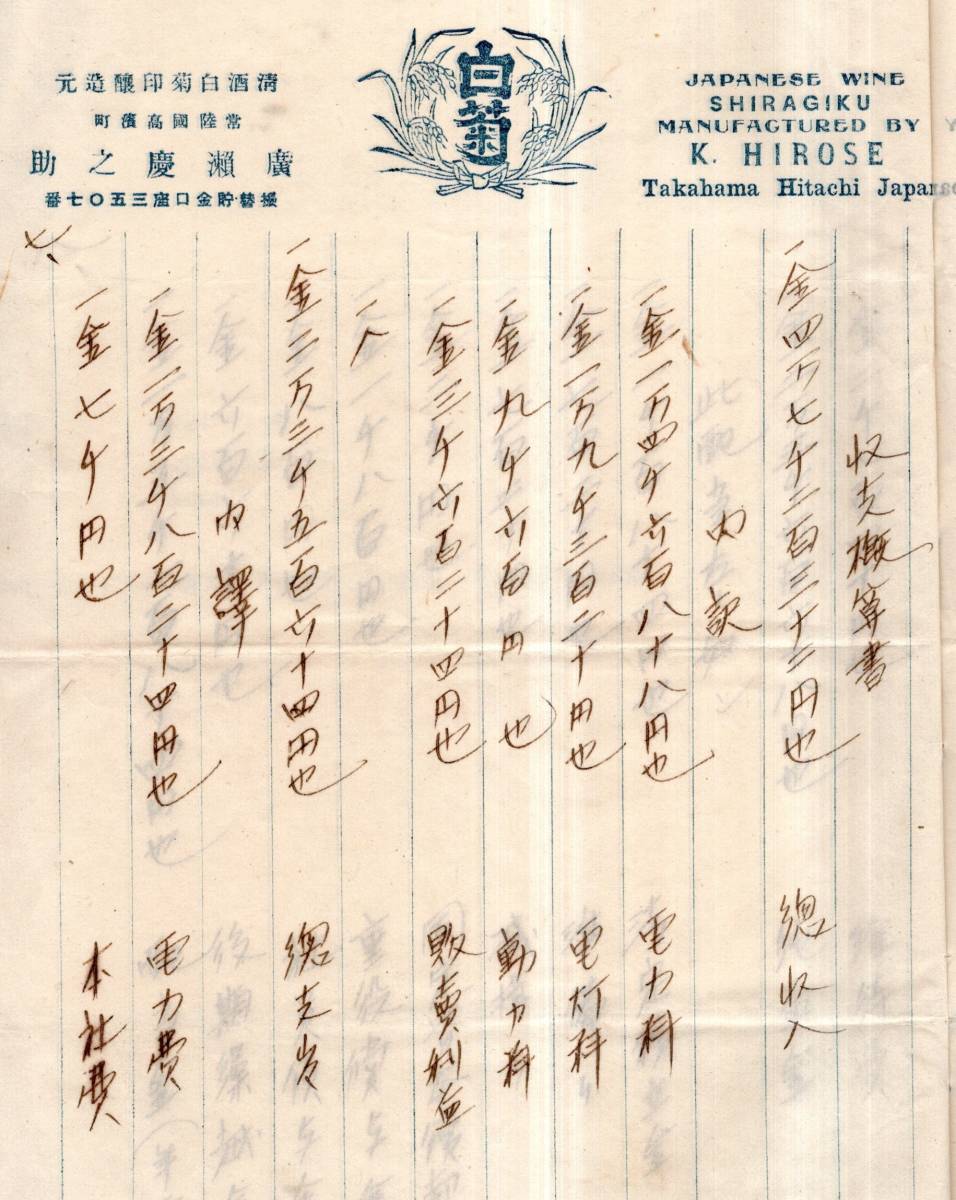 清酒白菊印醸造元
常陸國高濱町
廣瀨慶之助
振替貯金口座三五〇七番
白菊
JAPANESE WINE
SHIRAGIKU
MANUFACTURED BY
K. HIROSE
Takahama Hitachi Japan
収支概算書
一金四万七千二百三十二円也 總収入
内訳
一金一万四千六百八十八円也 電力料
一金一万九千三百二十円也 電灯料
一金九千六百円也 動力料
一金三千六百二十四円也 販賣利益
一金二万三千五百六十四円也 總支出
内譯
一金一万三千八百二十四円也 電力費
一金七千円也 本社費